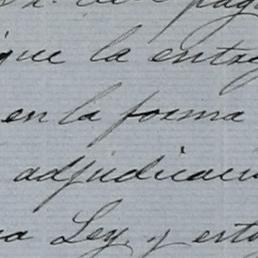 que la entre
en la forma
adjudicaci
Ley, y esta